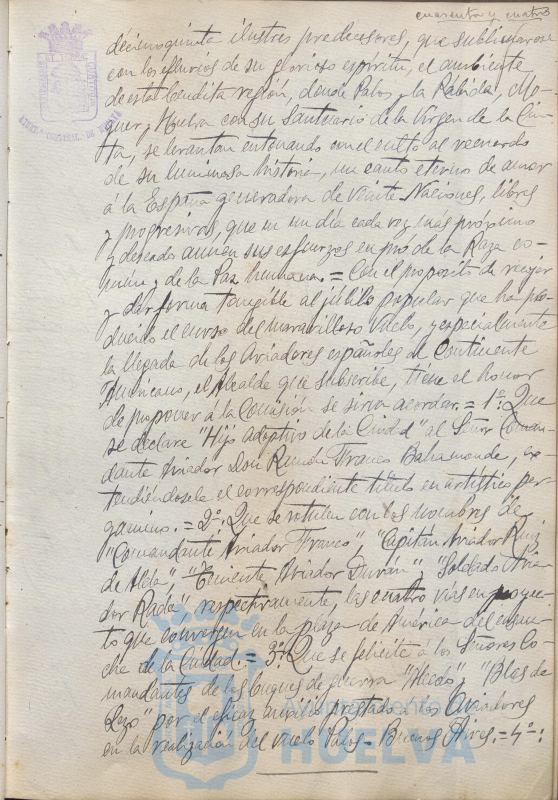 cuarenta y cuatro
decimoquinta ilustres predecesores, que sublimaron
con los efluvios de su glorioso espíritu, el ambiente
de esta bendita región, donde Palos y la Rábida, Mo-
guer y Huelva con su Santuario de la Virgen de la Cin-
ta, se levantan entonando con el culto al recuerdo
de su luminosa historia, un canto eterno de amor
á la España generadora de veinte Naciones, libres
y progresivas, que en un día cada vez más próximo
y deseado aunen sus esfuerzos en pró de la Raza co-
mún y de la Paz humana. = Con el proposito de recojer
y dar forma tangible al júbilo popular que ha pro-
ducido el curso del maravilloso vuelo, y especialmente
la llegada de los Aviadores españoles al Continente
Americano, el Alcalde que subscribe, tiene el honor
de proponer á la Comisión se sirva acordar. = 1º: Que
se declare "Hijo adoptivo de la Ciudad" al Señor Coman-
dante Aviador Don Ramón Franco Bahamonde, ex-
tendiéndosele el correspondiente título en artístico per-
gamino. = 2º: Que se rotulen con los nombres de
"Comandante Aviador Franco", "Capitán Aviador Ruiz
de Alda", "Teniente Aviador Durán", "Soldado Avia-
dor Rada" respectivamente, las cuatro vías en proyec-
to que convergen en la plaza de América del ensan-
che de la Ciudad. = 3º: Que se felicite á los Señores Co-
mandantes de los buques de guerra "Alsedo" y "Blas de
Lezo" por el eficaz auxilio prestado a los Aviadores
en la realización del vuelo Palos - Buenos Aires. = 4º:
Ayuntamiento
HUELVA